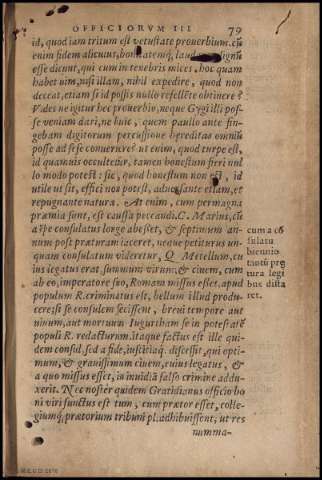 OFFICIORVM III 79
id, quod iam tritum est vetustate prouerbium. cũ
enim fidem alicuius, bonitatemq́; laudant, dignũ
esse dicunt, qui cum in tenebris mices, hoc quam
habet uim, nisi illam, nihil expedire, quod non
deceat, etiam si id possis nullo refellẽte obtinere?
Vides ne igitur hoc prouerbio, neque Gygi illi pos-
se veniam dari, ne huic, quem paullo ante fin-
gebam digitorum percussione hereditates omniũ
posse ad se se conuertere? ut enim, quod turpe est,
id quamuis occultetur, tamen honestum fieri nul
lo modo potest: sic, quod honestum non est, id
utile ut sit, effici non potest, aduersante etiam, et
repugnante natura. At enim, cum permagna
præmia sunt, est caussa peccandi. C. Marius, cũ
a spe consulatus longe abesset, & septimum an-
num post præturam iaceret, neque petiturus un-
quam consulatum videretur, Q. Metellum, cu
ius legatus erat, summum virum, & ciuem, cum
ab eo, imperatore suo, Romam missus esset, apud
populum R. criminatus est, bellum illud produ-
cere; si se consulem fecissent, breui tempore aut
uiuum, aut mortuum Iugurtham se in potestatẽ
populi R. redacturum. itaque factus est ille qui-
dem consul, sed a fide, iustitiaq́; discessit, qui opti-
mum, & grauissimum ciuem, cuius legatus, &
a quo missus esset, in inuidiã falso crimine addu-
xerit. Nec noster quidem Gratidianus officio bo
ni viri functus est tum, cum prætor esset, colle-
giumq́; prætorium tribuni pl. adhibuissent, ut res
numma-
cum a cõ
sulatu
biennio
tiuũ prę
tura legi
bus dista
ret.